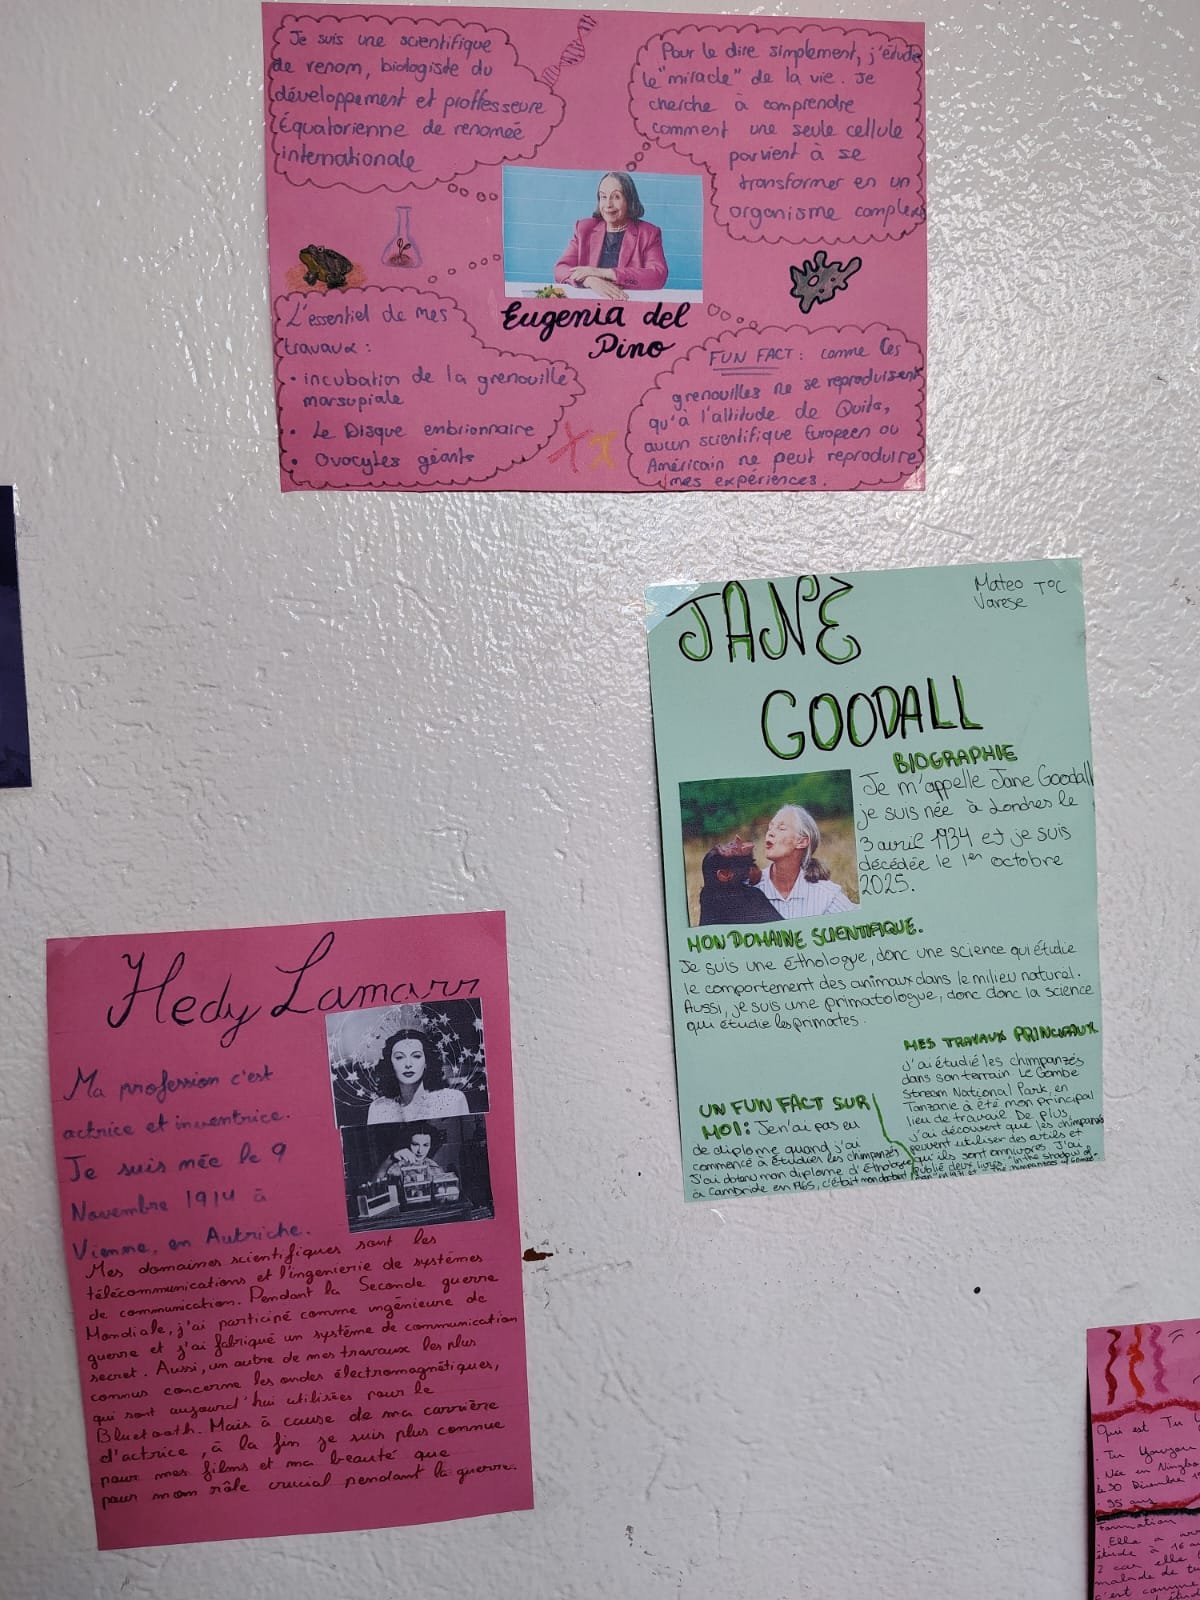 Je suis une scientifique
de renom, biologiste du
développement et proffesseure
Équatorienne de renomeé
internationale
Pour le dire simplement, j'étudie
le "miracle" de la vie. Je
cherche à comprendre
comment une seule cellule
parvient à se
transformer en un
organisme complexe
Eugenia del
Pino
L'essentiel de mes
travaux :
• incubation de la grenouille
marsupiale
• Le Disque embrionnaire
• Ovocytes géants
FUN FACT : comme ces
grenouilles ne se reproduisent
qu'à l'altitude de Quito,
aucun scientifique Européen ou
Américain ne peut reproduire
mes expériences.
JANE
GOODALL
Mateo T°C
Varese
BIOGRAPHIE
Je m'appelle Jane Goodall
je suis née à Londres le
3 avril 1934 et je suis
décédée le 1er octobre
2025.
MON DOMAINE SCIENTIFIQUE.
Je suis une éthologue, donc une science qui étudie
le comportement des animaux dans le milieu naturel.
Aussi, je suis une primatologue, donc donc la science
qui étudie les primates.
MES TRAVAUX PRINCIPAUX
j'ai étudié les chimpanzés
dans son terrain Le Gombe
Stream National Park, en
Tanzanie à été mon principal
lieu de travail De plus,
j'ai découvert que les chimpanzés
peuvent utiliser des outils et
qu'ils sont omnivores. J'ai
publié deux livres, "in the shadow of
UN FUN FACT SUR
MOI : Je n'ai pas eu
de diplome quand j'ai
commencé à étudier les chimpanzés
J'ai obtenu mon diplome d'éthologue
à Cambride en 1965, c'était mon doctorat
Hedy Lamarr
Ma profession c'est
actrice et inventrice.
Je suis née le 9
Novembre 1914 à
Vienne, en Autriche.
Mes domaines scientifiques sont les
télécommunications et l'ingenierie de systémes
de communication. Pendant la Seconde guerre
Mondiale, j'ai participé comme ingénieure de
guerre et j'ai fabriqué un système de communication
secret. Aussi, un autre de mes travaux les plus
connus concerne les ondes électromagnétiques,
qui sont aujourd'hui utilisées pour le
Bluetooth. Mais à cause de ma carrière
d'actrice, à la fin je suis plus connue
pour mes films et ma beauté que
pour mon rôle crucial pendant la guerre.
Qui est Tu
. Tu Youyou
. Née en Ningbo
le 30 Décembre
. 95 ans
Formation
. Elle a
étude à 16
? car elle
malade de
c'est comme